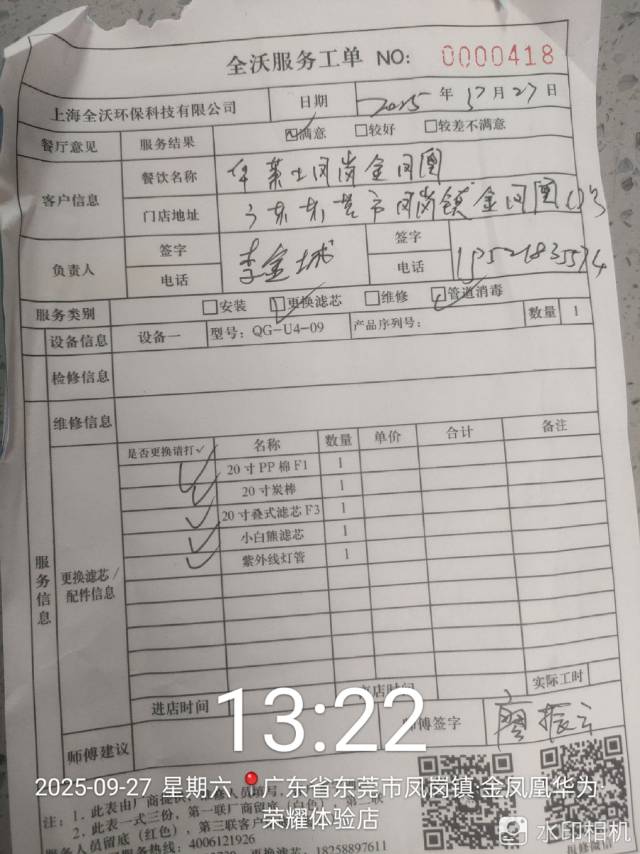 全沃服务工单 NO: 0000418
上海全沃环保科技有限公司 日期 2025 年 月 27 日
餐厅意见 服务结果 满意 较好 较差不满意
客户信息 餐饮名称 华莱士凤岗金凤凰
门店地址 广东东莞市凤岗镇金凤凰
负责人 签字 李金城 签字
电话 电话
服务类别 安装 更换滤芯 维修 管道消毒
设备信息 设备一 型号: QG-U4-09 产品序列号: 数量 1
检修信息
维修信息
服务信息
更换滤芯/配件信息
是否更换请打✓ 名称 数量 单价 合计 备注
✓ 20寸PP棉F1 1
✓ 20寸炭棒 1
✓ 20寸叠式滤芯F3 1
✓ 小白熊滤芯 1
✓ 紫外线灯管 1
进店时间 店时间 实际工时
师傅建议 师傅签字 廖振云
13:22
2025-09-27 星期六 广东省东莞市凤岗镇·金凤凰华为荣耀体验店
注: 1. 此表由厂商提供,
2. 此表一式三份, 第一联厂商留底(白色), 第二联
服务人员留底(红色), 第三联客户
服务热线: 4006121926
更换滤芯: 18258897611
报修微信
水印相机